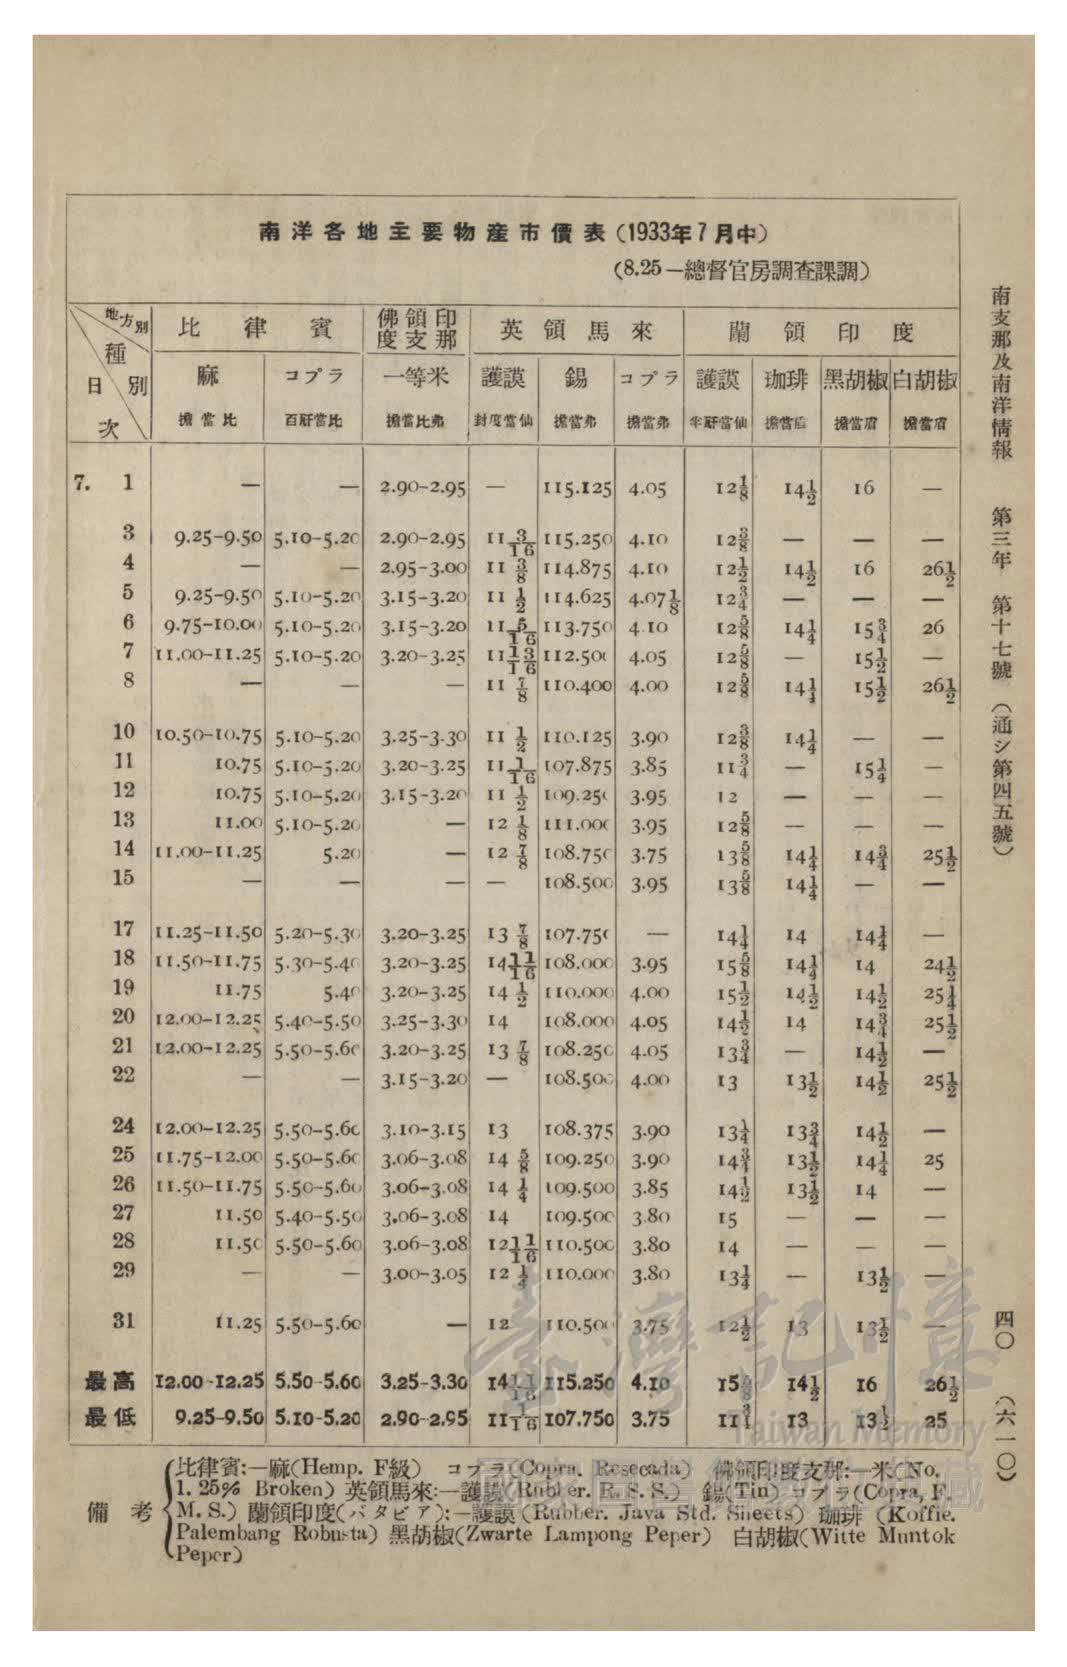 南洋各地主要物産市價表(1933年7月中)
(8.25—總督官房調査課調)
地方別 種別 日次
比律賓 佛領印度支那 英領馬來 蘭領印度
麻 コプラ 一等米 護謨 錫 コプラ 護謨 珈琲 黑胡椒 白胡椒
擔當比 百瓩當比 擔當比弗 封度當仙 擔當弗 擔當弗 半瓩當仙 擔當盾 擔當盾 擔當盾
7. 1 — — 2.90-2.95 — 115.125 4.05 12⅛ 14½ 16 —
3 9.25-9.50 5.10-5.20 2.90-2.95 11 3/16 115.250 4.10 12⅜ — — —
4 — — 2.95-3.00 11 ⅜ 114.875 4.10 12½ 14½ 16 26½
5 9.25-9.50 5.10-5.20 3.15-3.20 11 ½ 114.625 4.07⅛ 12¾ — — —
6 9.75-10.00 5.10-5.20 3.15-3.20 11 5/16 113.750 4.10 12⅝ 14¼ 15¾ 26
7 11.00-11.25 5.10-5.20 3.20-3.25 11 13/16 112.500 4.05 12⅝ — 15½ —
8 — — — 11 ⅞ 110.400 4.00 12⅝ 14¼ 15½ 26½
10 10.50-10.75 5.10-5.20 3.25-3.30 11 ½ 110.125 3.90 12⅜ 14¼ — —
11 10.75 5.10-5.20 3.20-3.25 11 1/16 107.875 3.85 11¾ — 15¼ —
12 10.75 5.10-5.20 3.15-3.20 11 ½ 109.250 3.95 12 — — —
13 11.00 5.10-5.20 — 12 ⅛ 111.000 3.95 12⅝ — — —
14 11.00-11.25 5.20 — 12 ⅞ 108.750 3.75 13⅝ 14¼ 14¾ 25½
15 — — — — 108.500 3.95 13⅝ 14¼ — —
17 11.25-11.50 5.20-5.30 3.20-3.25 13 ⅞ 107.750 — 14¼ 14 14¼ —
18 11.50-11.75 5.30-5.40 3.20-3.25 14 11/16 108.000 3.95 15⅝ 14¼ 14 24½
19 11.75 5.40 3.20-3.25 14 ½ 110.000 4.00 15½ 14½ 14½ 25¼
20 12.00-12.25 5.40-5.50 3.25-3.30 14 108.000 4.05 14½ 14 14¾ 25½
21 12.00-12.25 5.50-5.60 3.20-3.25 13 ⅞ 108.250 4.05 13¾ — 14½ —
22 — — 3.15-3.20 — 108.500 4.00 13 13½ 14½ 25½
24 12.00-12.25 5.50-5.60 3.10-3.15 13 108.375 3.90 13¼ 13¾ 14½ —
25 11.75-12.00 5.50-5.60 3.06-3.08 14 ⅝ 109.250 3.90 14¾ 13½ 14¼ 25
26 11.50-11.75 5.50-5.60 3.06-3.08 14 ¼ 109.500 3.85 14½ 13½ 14 —
27 11.50 5.40-5.50 3.06-3.08 14 109.500 3.80 15 — — —
28 11.50 5.50-5.60 3.06-3.08 12 11/16 110.500 3.80 14 — — —
29 — — 3.00-3.05 12 ¼ 110.000 3.80 13¼ — 13½ —
31 11.25 5.50-5.60 — 12 110.500 3.75 12½ 13 13½ —
最高 12.00-12.25 5.50-5.60 3.25-3.30 14 11/16 115.250 4.10 15⅝ 14½ 16 26½
最低 9.25-9.50 5.10-5.20 2.90-2.95 11 1/16 107.750 3.75 11¾ 13 13½ 25
備考
比律賓:—麻(Hemp. F級) コプラ(Copra. Resecada) 佛領印度支那:—米(No.
1. 25% Broken) 英領馬來:—護謨(Rubber. R. S. S.) 錫(Tin) コプラ(Copra, F.
M. S.) 蘭領印度(バタビア):—護謨(Rubber. Java Std. Sheets) 珈琲 (Koffie.
Palembang Robusta) 黑胡椒(Zwarte Lampong Peper) 白胡椒(Witte Muntok
Peper)
南支那及南洋情報 第三年 第十七號 (通シ第四五號) 四〇 (六一〇)
臺灣記憶
Taiwan Memory
國家圖書館典藏